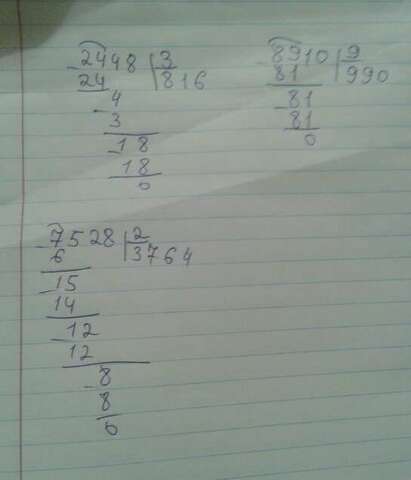 2448 3
24 816
4
3
18
18
0
8910 9
81 990
81
81
0
7528 2
6 3764
15
14
12
12
8
8
0